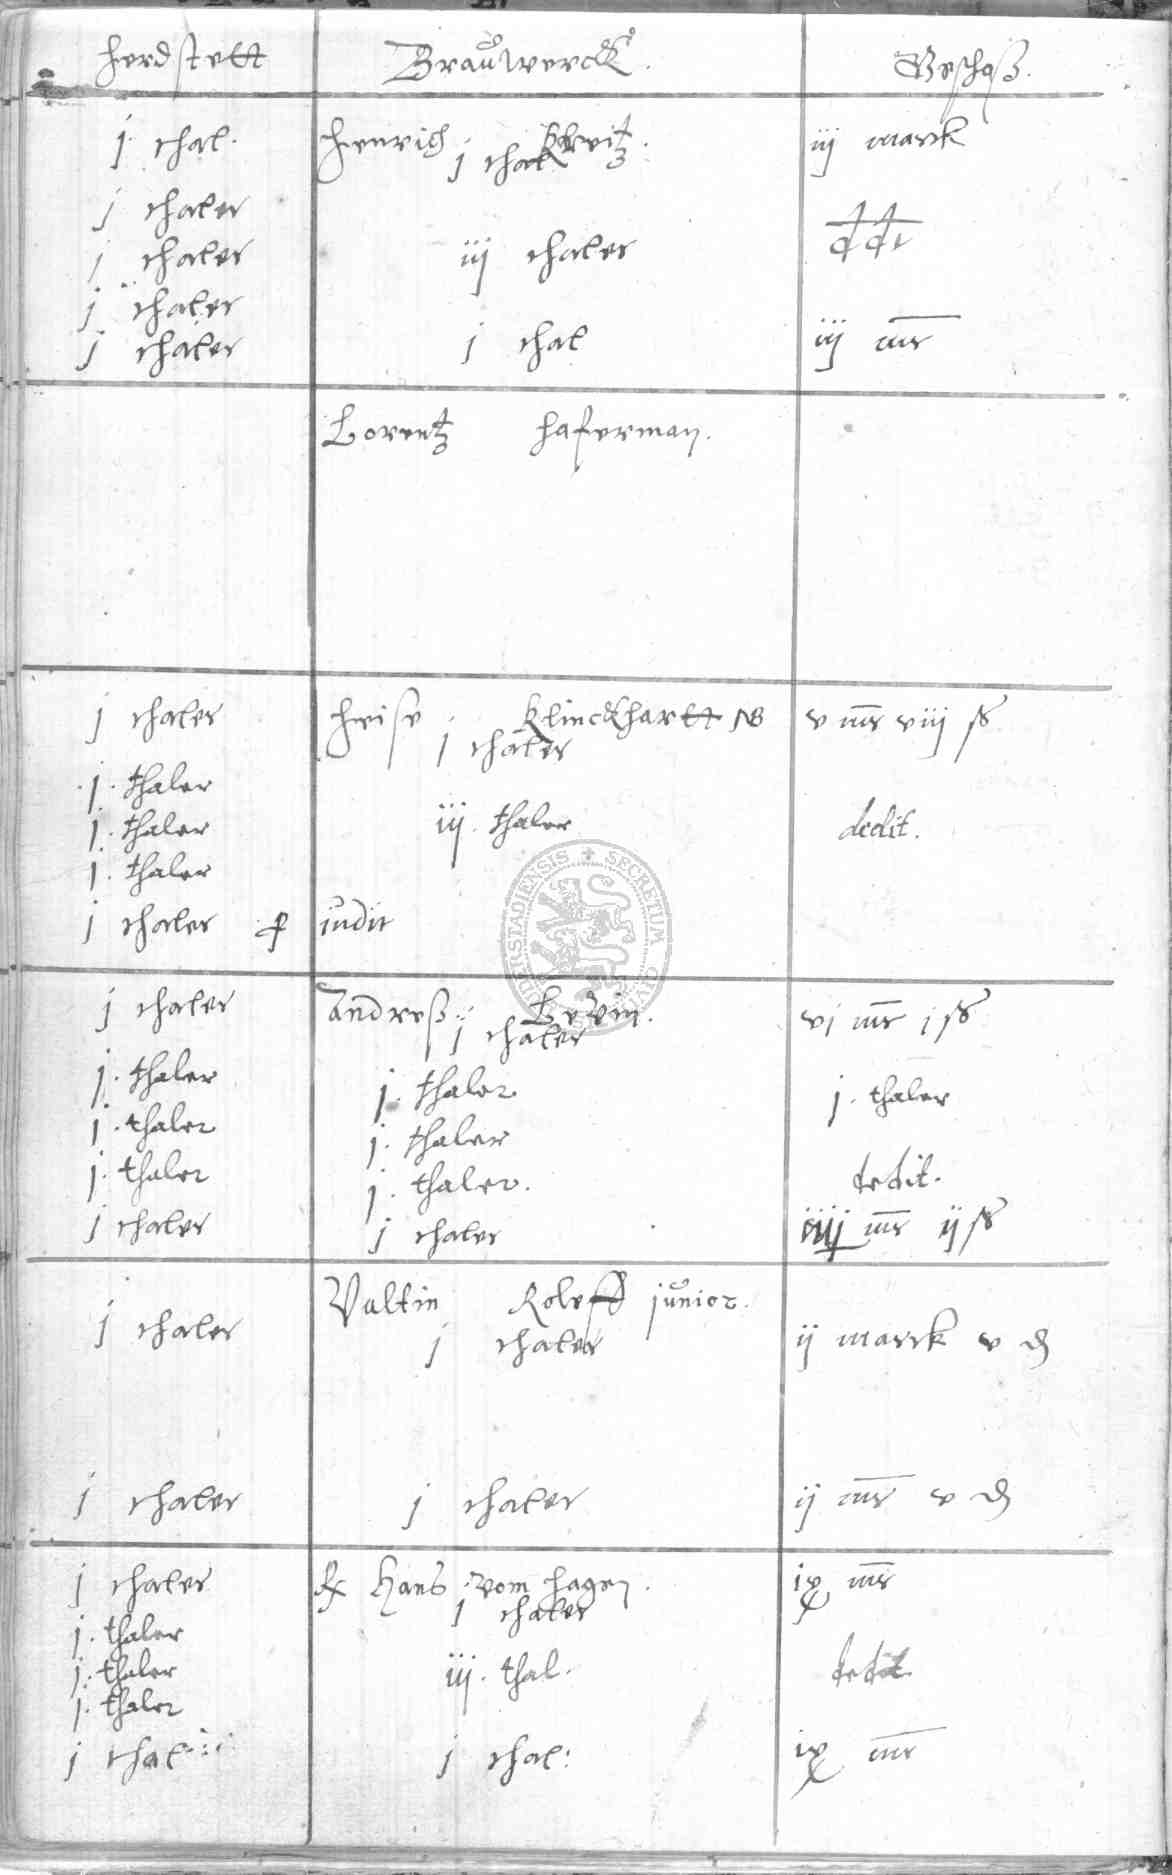 Herdstett Brauwerck Geschoß.
j thal. Henrich Kreitz. iij marck
j thal
j thaler
j thaler iij thaler ddt
j thaler
j thaler j thal iij mr
Lorentz Haferman.
j thaler Heise Klinckhartt NB v mr viij ß
j thaler
j. thaler
j. thaler iij. thaler dedit.
j. thaler
j thaler
j thaler Andreß Levin. vj mr j ß
j thaler
j. thaler j. thaler j. thaler
j. thaler j. thaler
j. thaler j. thaler. dedit.
j thaler j thaler iiij mr ij ß
Valtin Roleff junior.
j thaler j thaler ij marck v d
j thaler j thaler ij mr v d
j thaler Hans vom Hagen. ix mr
j thaler
j. thaler
j. thaler iij. thal. dedit
j. thaler
j thal j thal: ix mr
SECRETUM CIVI DERSTADIENSIS